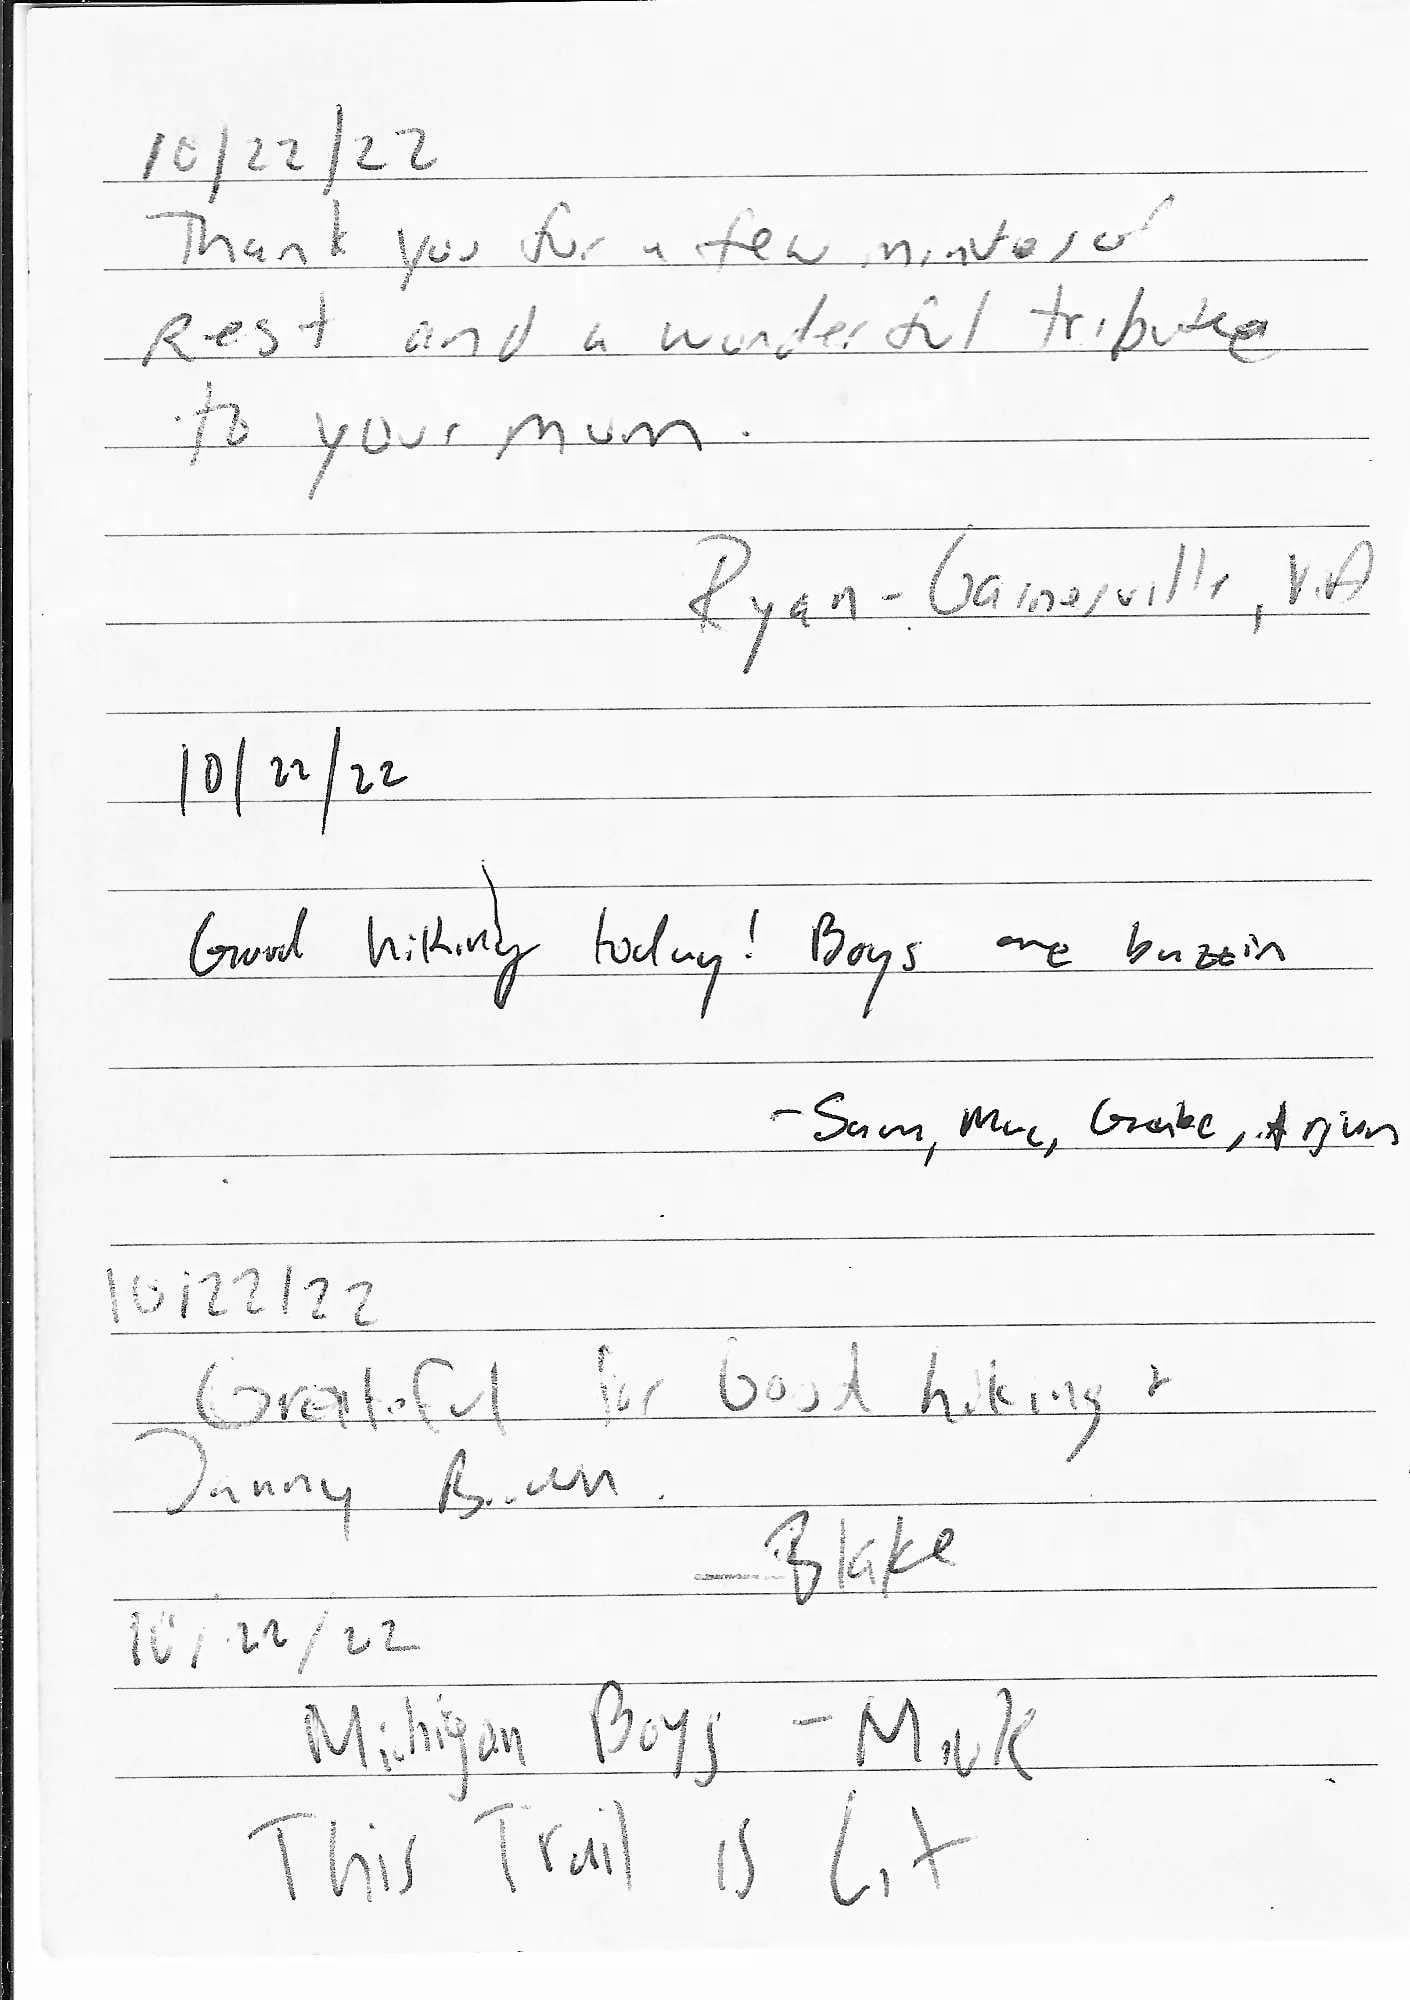 10/22/22
Thank you for a few minutes of
Rest and a wonderful tribute
to your mum.
Ryan - Gainesville, VA
10/22/22
Good hiking today! Boys are buzzin
- Sam, Mac, Grabe, Arjun
10/22/22
Grateful for Good hiking +
Danny Brown.
— Blake
10/22/22
Michigan Boys -
This Trail is Lit